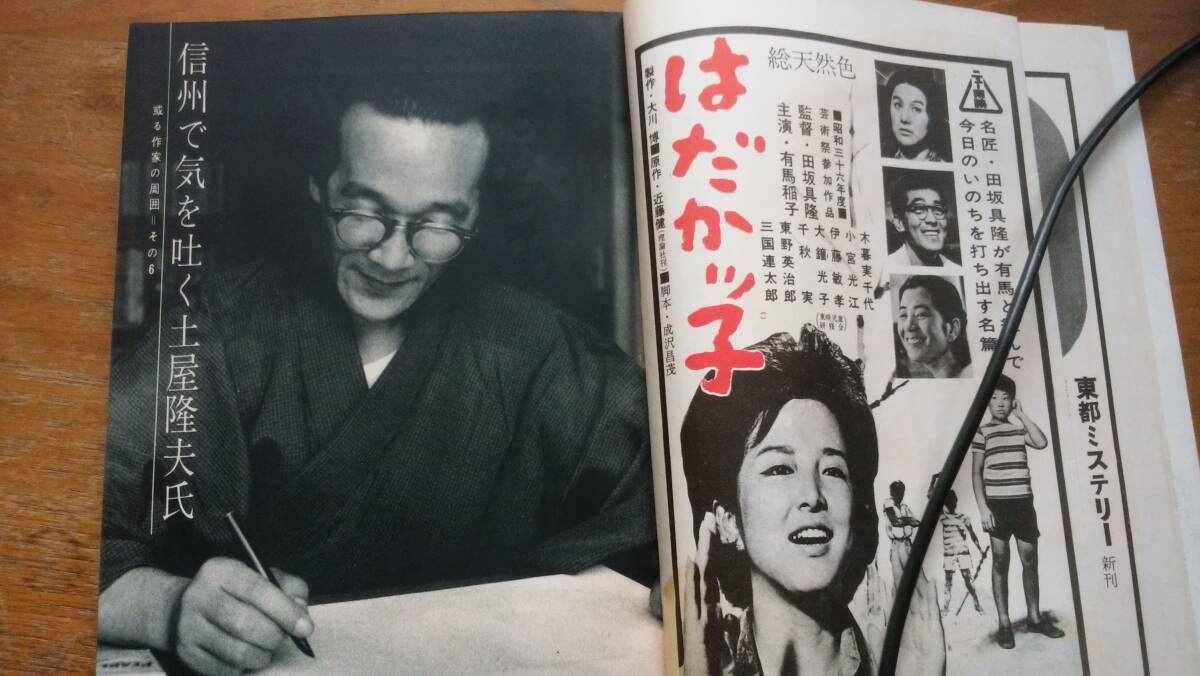 信州で気を吐く土屋隆夫氏
或る作家の周囲=その6
総天然色
はだかッ子
製作・大川 博■原作・近藤 健(理論社刊)■脚本・成沢昌茂
■昭和三十六年度■
芸術祭参加作品
監督・田坂具隆
主演・有馬稲子
木暮実千代
小宮光江
伊藤敏孝
大鐘光子
(東映児童研修会)
千秋 実
東野英治郎
三国連太郎
ニュー東映
名匠・田坂具隆が有馬と
んで
今日のいのちを打ち出す名篇
東都ミステリー 新刊